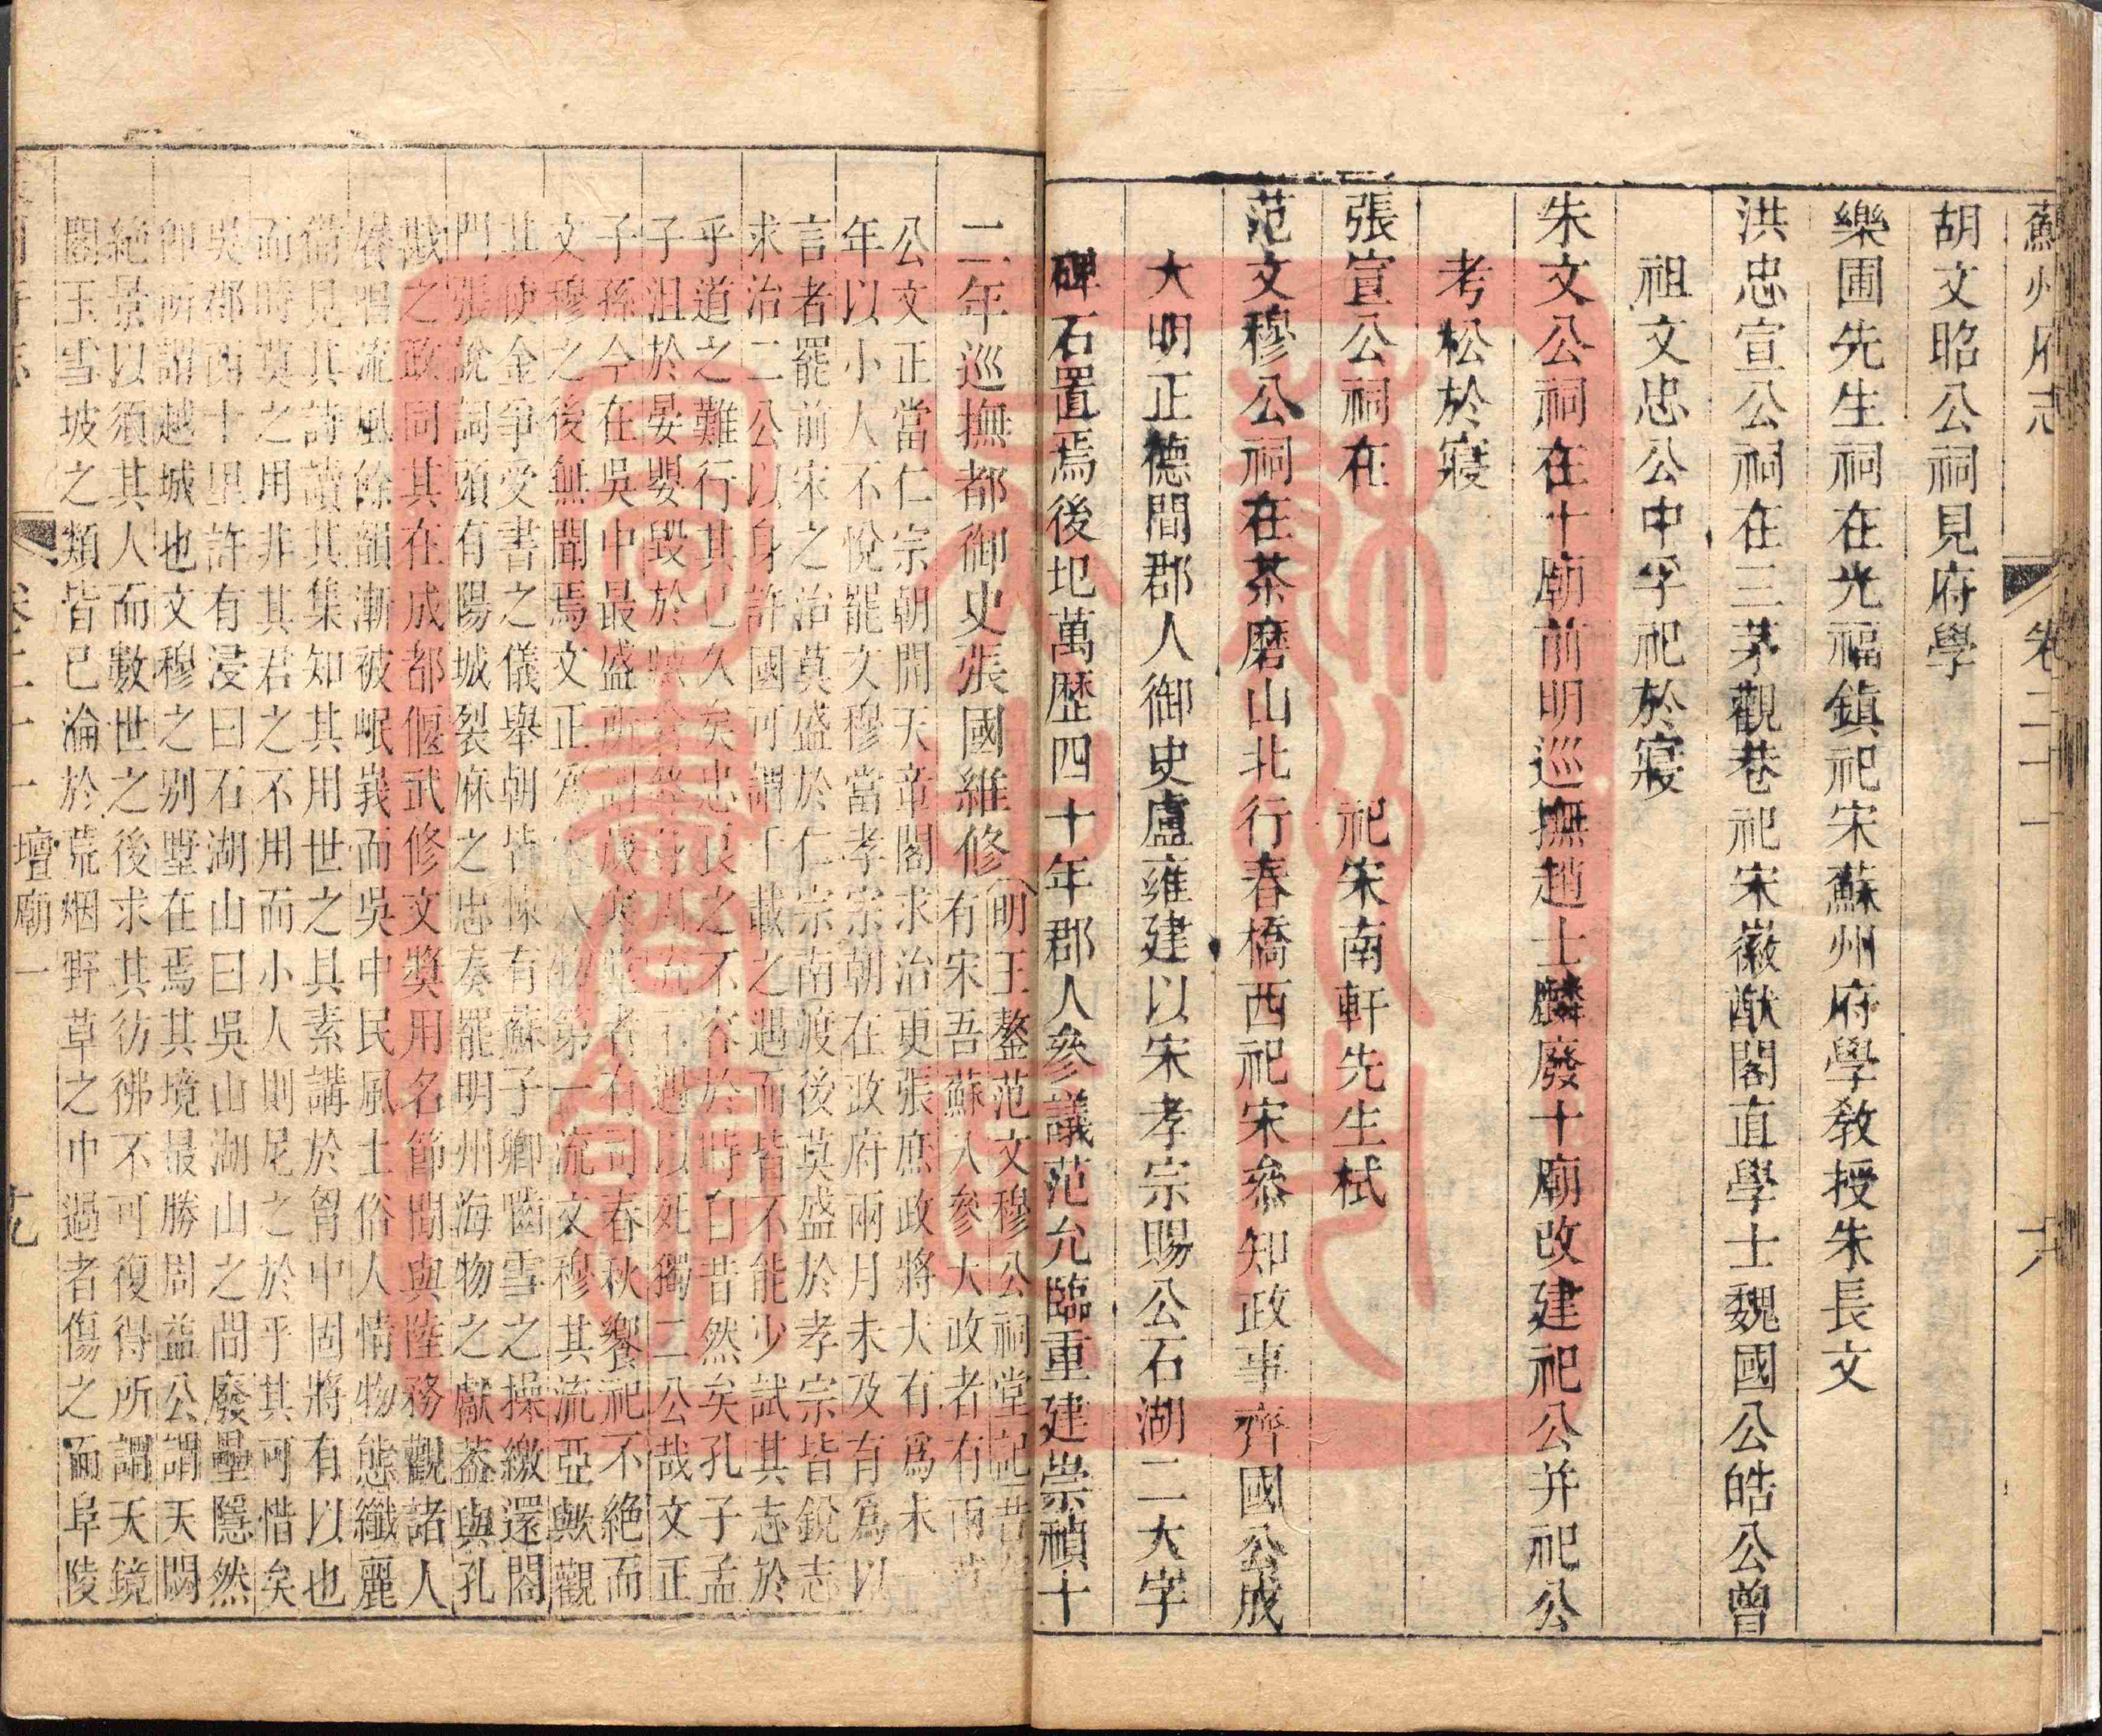 蘇州府志 卷二十一
胡文昭公祠見府學
樂圃先生祠在光福鎮祀宋蘇州府學教授朱長文
洪忠宣公祠在三茅觀巷祀宋徽猷閣直學士魏國公皓公曾
祖文忠公中孚祀於寢
朱文公祠在十廟前明巡撫趙士麟廢十廟改建祀公并祀公
考松於寢
張宣公祠在 祀宋南軒先生栻
范文穆公祠在茶磨山北行春橋西祀宋叅知政事齊國公成
大明正德間郡人御史盧雍建以宋孝宗賜公石湖二大字
碑石置焉後圯萬歷四十年郡人參議范允臨重建崇禎十
二年巡撫都御史張國維修
明王鏊范文穆公祠堂記昔
有宋吾蘇入參大政者有兩
公文正當仁宗朝開天章閣求治更張庶政將大有爲未
年以小人不悅罷文穆當孝宗朝在政府兩月未及有爲以
言者罷前宋之治莫盛於仁宗南渡後莫盛於孝宗皆銳志
求治二公以身許國可謂千載之遇而皆不能少試其志於
乎道之難行其已久矣忠良之不容於時自昔然矣孔子孟
子沮於晏嬰毀於臧倉 遇以死獨二公哉文正
子孫今在吳中最盛所 者有司春秋饗祀不絕而
文穆之後無聞焉文正爲 人物第一流文穆其流亞歟觀
其使金爭受書之儀舉朝皆悚有蘇子卿嚙雪之操繳還閤
門張說詞頭有陽城裂麻之忠奏罷明州海物之獻葢與孔
戣之政同其在成都偃武修文奬用名節聞與陸務觀諸人
賡唱流風餘韻漸被岷峩而吳中民風土俗人情物態纖麗
備見其詩讀其集知其用世之具素講於胷中固將有以也
而時莫之用非其君之不用而小人則尼之於乎其可惜矣
吳郡西十里許有浸曰石湖山曰吳山湖山之間廢壘隱然
卽所謂越城也文穆之别墅在焉其境最勝周益公謂天閟
絕景以須其人而數世之後求其彷彿不可復得所謂天鏡
閣玉雪坡之類皆已淪於荒烟野草之中過者傷之而阜陵
壇廟一